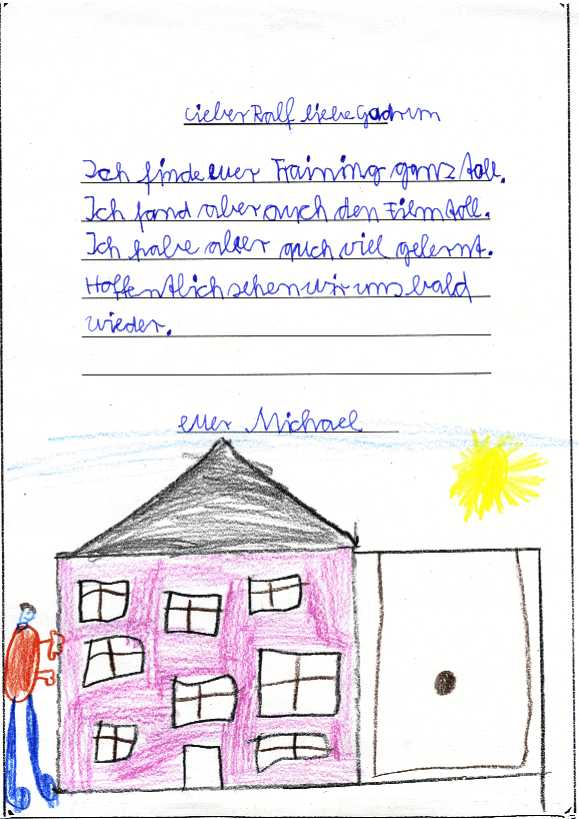 Lieber Ralf liebe Gudrun
Ich finde euer Training ganz toll.
Ich fand aber auch den Film toll.
Ich habe aber auch viel gelernt.
Hoffentlich sehen wir uns bald
wieder.
euer Michael